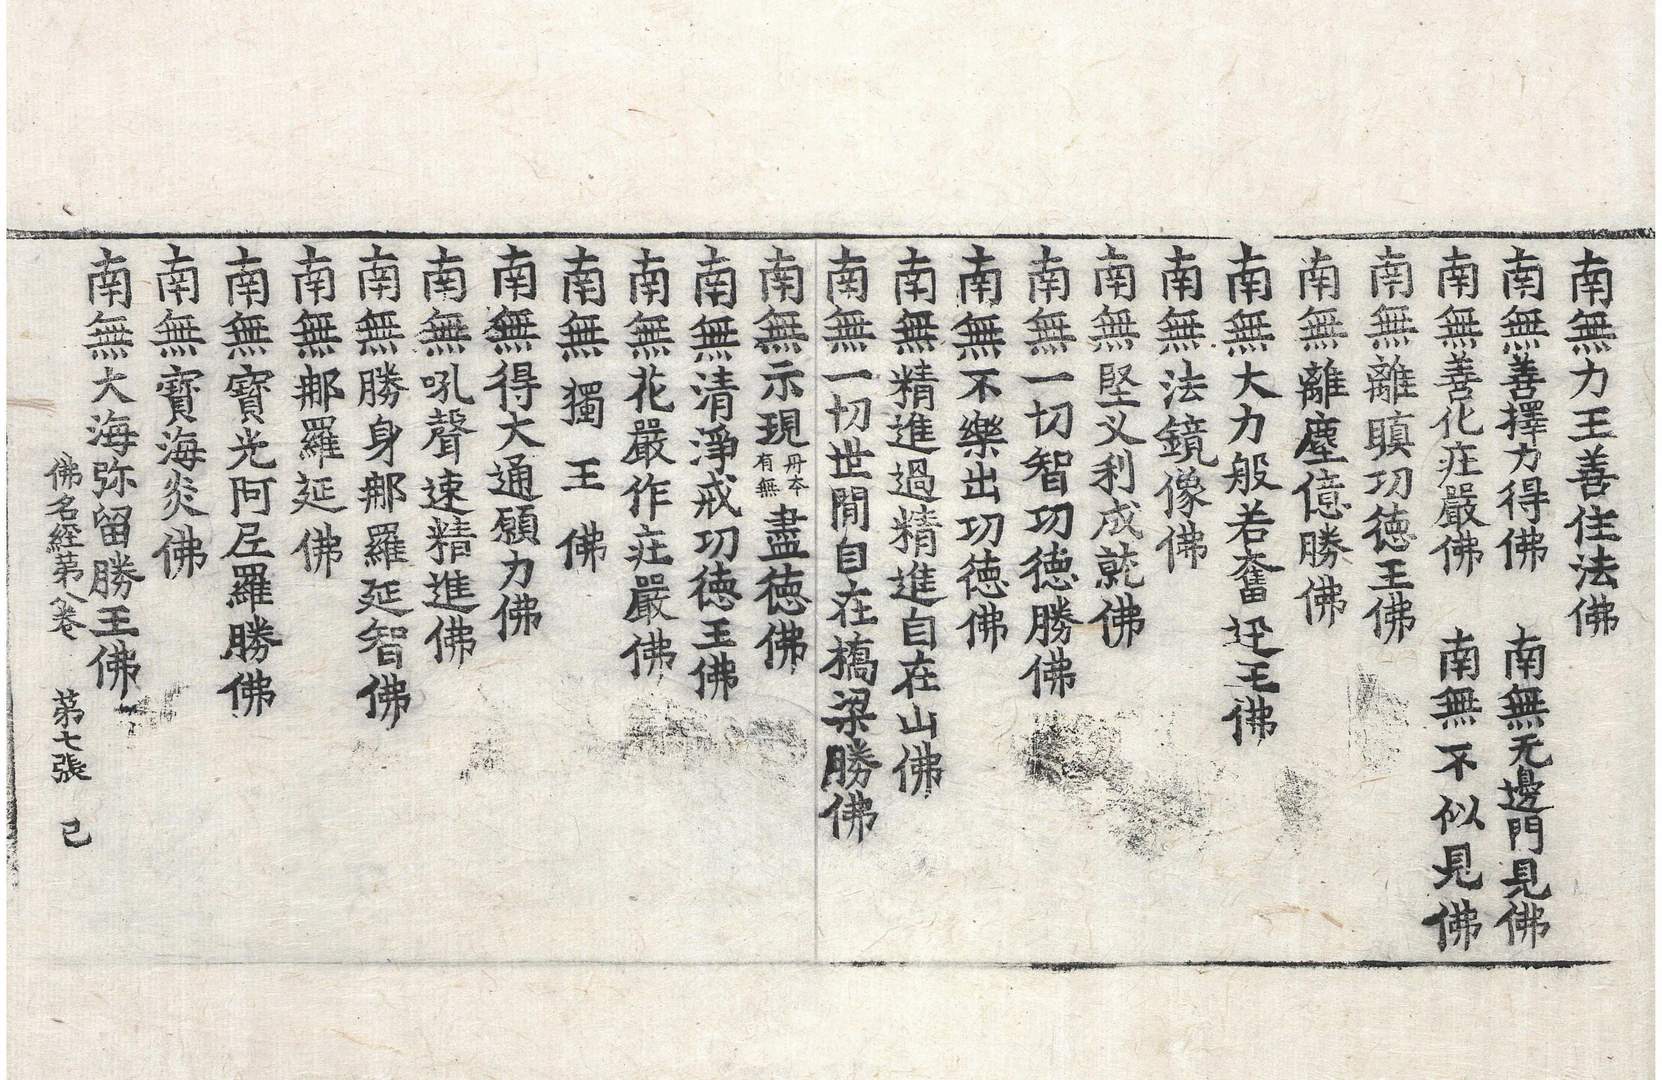 南無力王善住法佛
南無善擇力得佛　南無无邊門見佛
南無善化庄嚴佛　南無不似見佛
南無離瞋功徳王佛
南無離塵億勝佛
南無大力般若奮迅王佛
南無法鏡像佛
南無堅义利成就佛
南無一切智功徳勝佛
南無不樂出功徳佛
南無精進過精進自在山佛
南無一切世間自在橋梁勝佛
南無示現丹本有無盡徳佛
南無清淨戒功徳王佛
南無花嚴作庄嚴佛
南無獨王佛
南無得大通願力佛
南無吼聲速精進佛
南無勝身那羅延智佛
南無那羅延佛
南無寶光阿尼羅勝佛
南無寶海炎佛
南無大海弥留勝王佛
佛名經苐八卷　苐七張　己